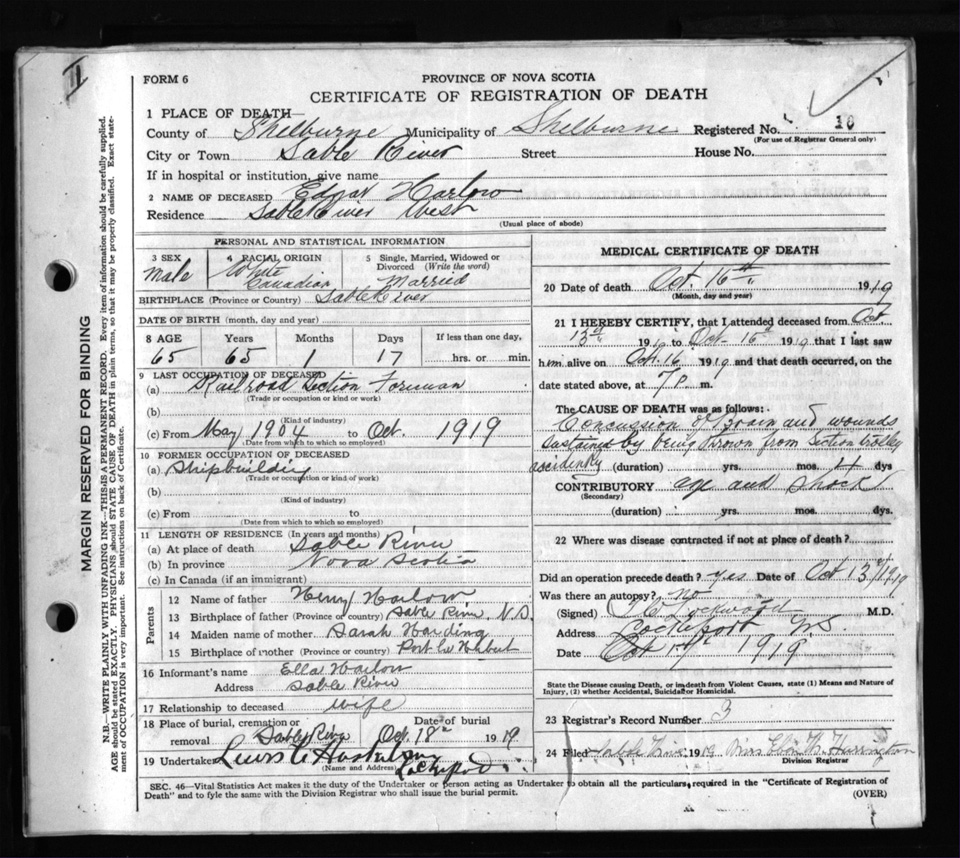 II
FORM 6
PROVINCE OF NOVA SCOTIA
CERTIFICATE OF REGISTRATION OF DEATH
1 PLACE OF DEATH
County of Shelburne Municipality of Shelburne Registered No. 10
(For use of Registrar General only)
City or Town Sable River Street House No.
If in hospital or institution, give name
2 NAME OF DECEASED Edgar Harlow
Residence Sable River West
(Usual place of abode)
PERSONAL AND STATISTICAL INFORMATION
3 SEX 4 RACIAL ORIGIN 5 Single, Married, Widowed or
Divorced (Write the word)
Male White Canadian Married
BIRTHPLACE (Province or Country) Sable River
DATE OF BIRTH (month, day and year)
8 AGE Years Months Days If less than one day,
65 65 1 17 hrs. or min.
9 LAST OCCUPATION OF DECEASED
(a) Railroad Section Foreman
(Trade or occupation or kind of work)
(b)
(Kind of industry)
(c) From May 1904 to Oct. 1919
(Date from which to which so employed)
10 FORMER OCCUPATION OF DECEASED
(a) Shipbuilding
(Trade or occupation or kind of work)
(b)
(Kind of industry)
(c) From to
(Date from which to which so employed)
11 LENGTH OF RESIDENCE (In years and months)
(a) At place of death Sable River
(b) In province Nova Scotia
(c) In Canada (if an immigrant)
Parents
12 Name of father Henry Harlow
13 Birthplace of father (Province or country) Sable River, N.S.
14 Maiden name of mother Sarah Harding
15 Birthplace of mother (Province or Country) Port Le Hebert
16 Informant's name Ella Harlow
Address Sable River
17 Relationship to deceased wife
18 Place of burial, cremation or Date of burial
removal Sable River Oct. 18th 1919
19 Undertaker Lewis
(Name and Address) Lockeport
MEDICAL CERTIFICATE OF DEATH
20 Date of death Oct. 16th 1919
(Month, day and year)
21 I HEREBY CERTIFY, that I attended deceased from Oct
13th 1919 to Oct. 16th 1919 that I last saw
him alive on Oct. 16 1919 and that death occurred, on the
date stated above, at 7 P m.
The CAUSE OF DEATH was as follows:
Concussion of Brain and wounds
sustained by being thrown from section trolley
(duration) yrs. mos. 4 dys
CONTRIBUTORY age and shock
(Secondary)
(duration) yrs. mos. dys.
22 Where was disease contracted if not at place of death?
Did an operation precede death? yes Date of Oct 13th/1919
Was there an autopsy? no
(Signed) Lockwood M.D.
Address Lockeport N.S.
Date Oct 1919
State the Disease causing Death, or in death from Violent Causes, state (1) Means and Nature of
Injury, (2) whether Accidental, Suicidal or Homicidal.
23 Registrar's Record Number 3
24 Filed Sable River 1919 Harrington
Division Registrar
SEC. 46—Vital Statistics Act makes it the duty of the Undertaker or person acting as Undertaker to obtain all the particulars required in the "Certificate of Registration of
Death" and to fyle the same with the Division Registrar who shall issue the burial permit.
(OVER)
MARGIN RESERVED FOR BINDING
N.B.—WRITE PLAINLY WITH UNFADING INK—THIS IS A PERMANENT RECORD. Every item of information should be carefully supplied.
AGE should be stated EXACTLY. PHYSICIANS should STATE CAUSE OF DEATH in plain terms, so that it may be properly classified. Exact state-
ment of OCCUPATION is very important. See instructions on back of Certificate.